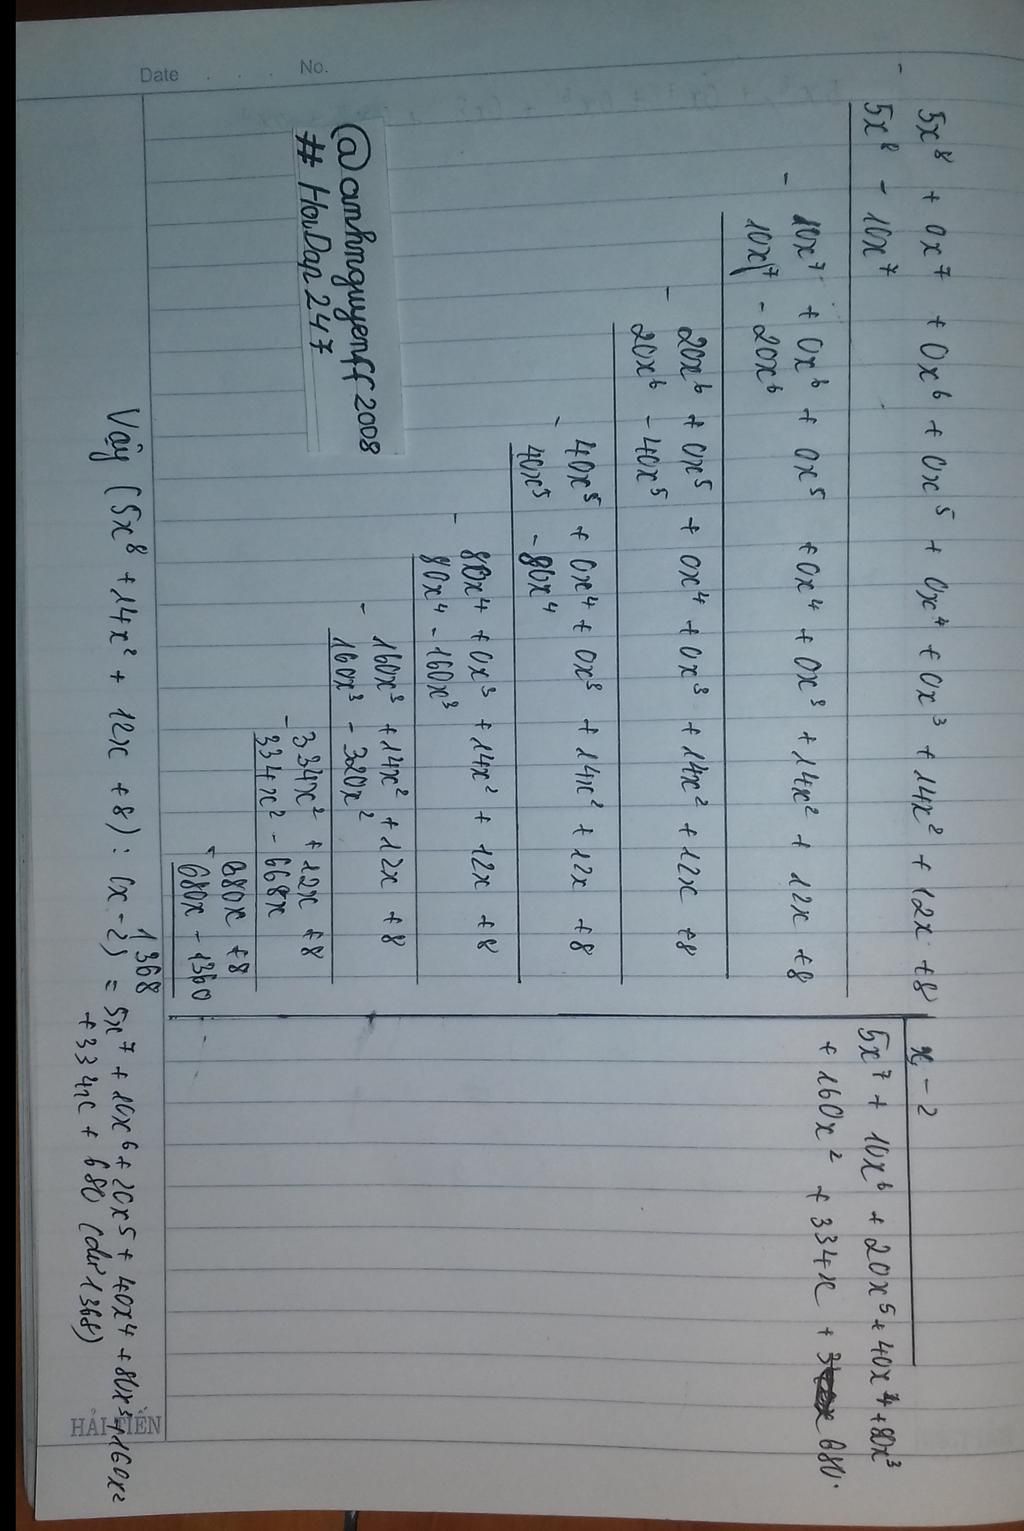 Date . . . No.
5x⁸ + 0x⁷ + 0x⁶ + 0x⁵ + 0x⁴ + 0x³ + 14x² + 12x + 8
x - 2
-
5x⁸ - 10x⁷
5x⁷ + 10x⁶ + 20x⁵ + 40x⁴ + 80x³
10x⁷ + 0x⁶ + 0x⁵ + 0x⁴ + 0x³ + 14x² + 12x + 8
+ 160x² + 334x + 680.
-
10x⁷ - 20x⁶
20x⁶ + 0x⁵ + 0x⁴ + 0x³ + 14x² + 12x + 8
-
20x⁶ - 40x⁵
40x⁵ + 0x⁴ + 0x³ + 14x² + 12x + 8
-
40x⁵ - 80x⁴
80x⁴ + 0x³ + 14x² + 12x + 8
-
80x⁴ - 160x³
160x³ + 14x² + 12x + 8
-
160x³ - 320x²
334x² + 12x + 8
-
334x² - 668x
680x + 8
-
680x - 1360
1368
@anhnguyenff2008
# HoiDap247
Vậy (5x⁸ + 14x² + 12x + 8) : (x - 2) = 5x⁷ + 10x⁶ + 20x⁵ + 40x⁴ + 80x³ + 160x²
+ 334x + 680 (dư 1368)
HẢI TIẾN